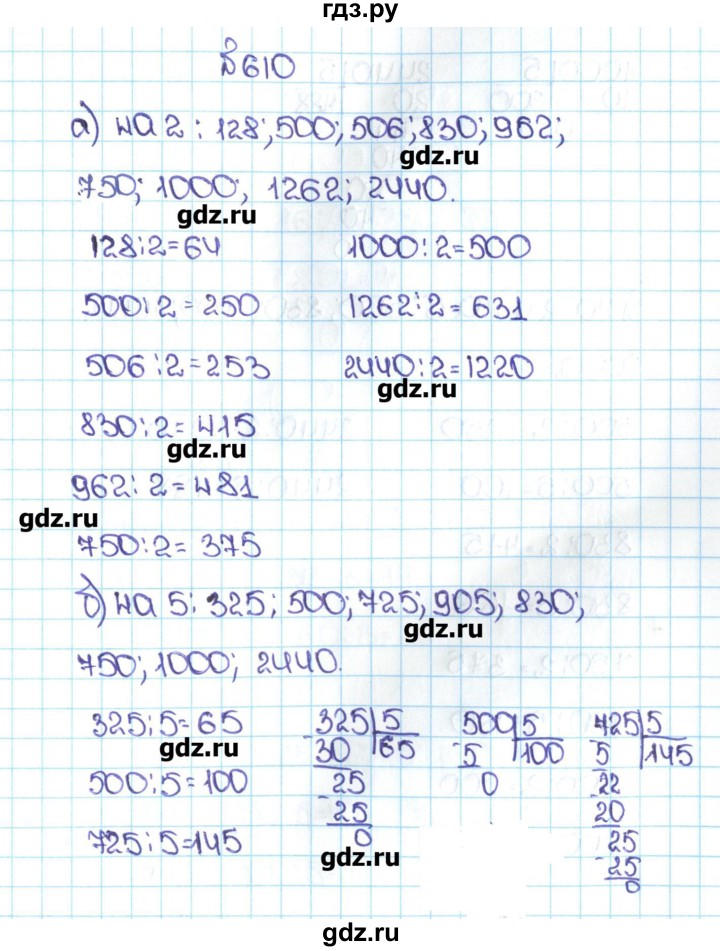 гдз.ру
№610
а) на 2 : 128; 500; 506; 830; 962;
gdz.ru
750; 1000; 1262; 2440.
gdz.ru
128:2=64 1000:2=500
500:2=250 1262:2=631
506:2=253 2440:2=1220
gdz.ru
830:2=415
gdz.ru
962:2=481
gdz.ru
750:2=375
б) на 5: 325; 500; 725; 905; 830;
gdz.ru
750; 1000; 2440.
325:5=65
gdz.ru
500:5=100
725:5=145
325|5
-30 |65
25
-25
0
500|5
-5 |100
0
725|5
-5 |145
-22
20
25
-25
0
gdz.ru
gdz.ru